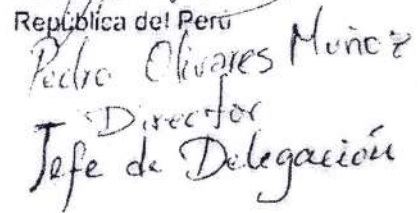 República del Perú
Pedro Olivares Muñoz
Director
Jefe de Delegación